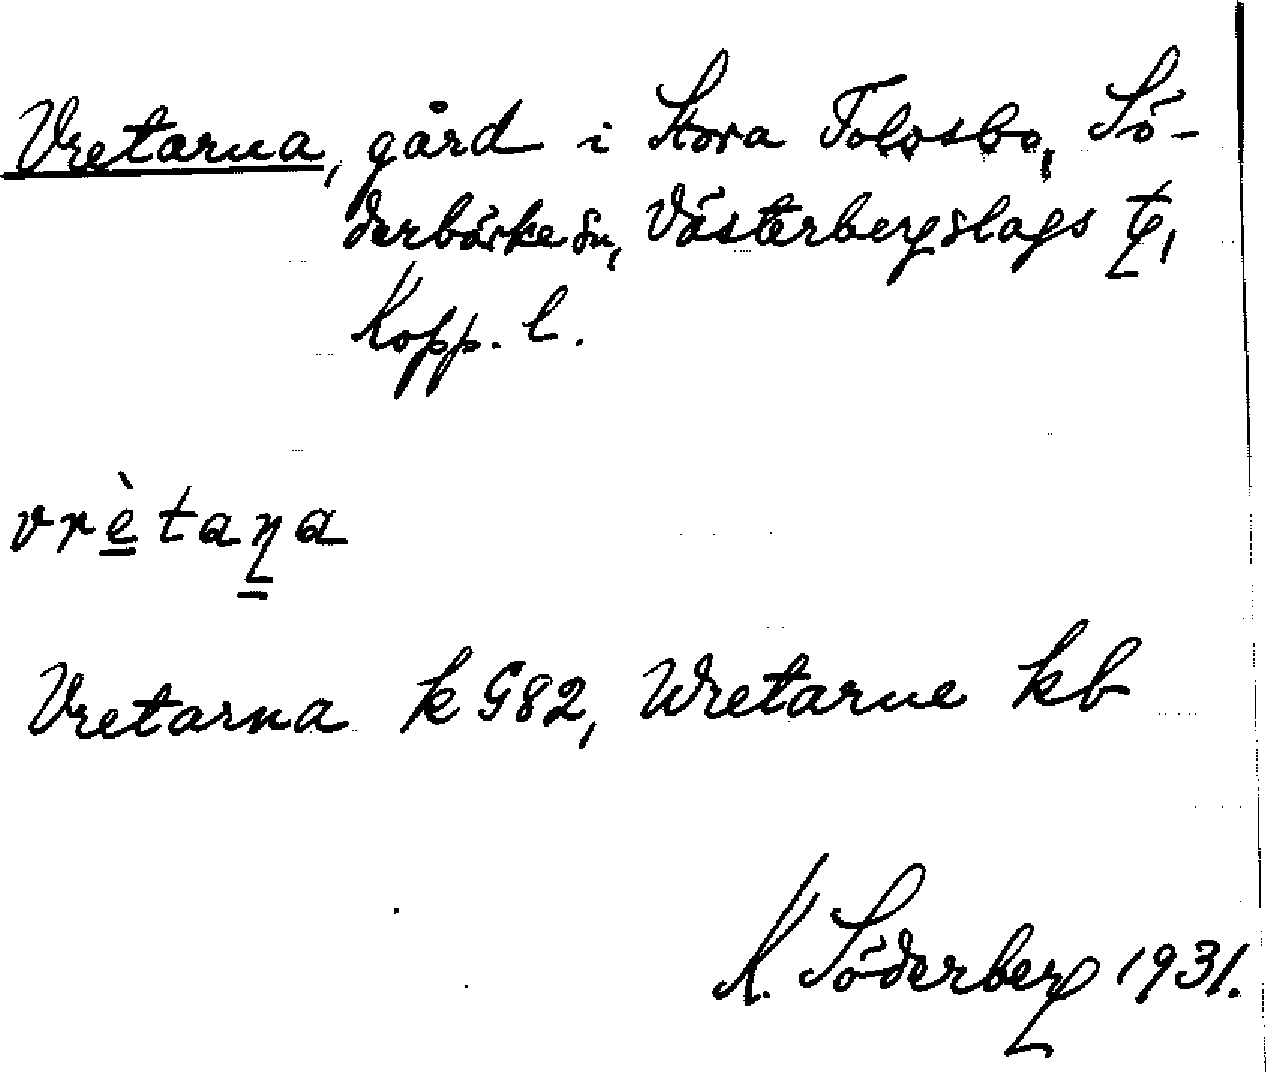 Vretarna, gård i Stora Tolvsbo, Sö-
derbärke sn, Västerbergslags tg,
Kopp. l.
vrètaṇa
Vretarna k G82, Wretarne kb
K. Söderberg 1931.